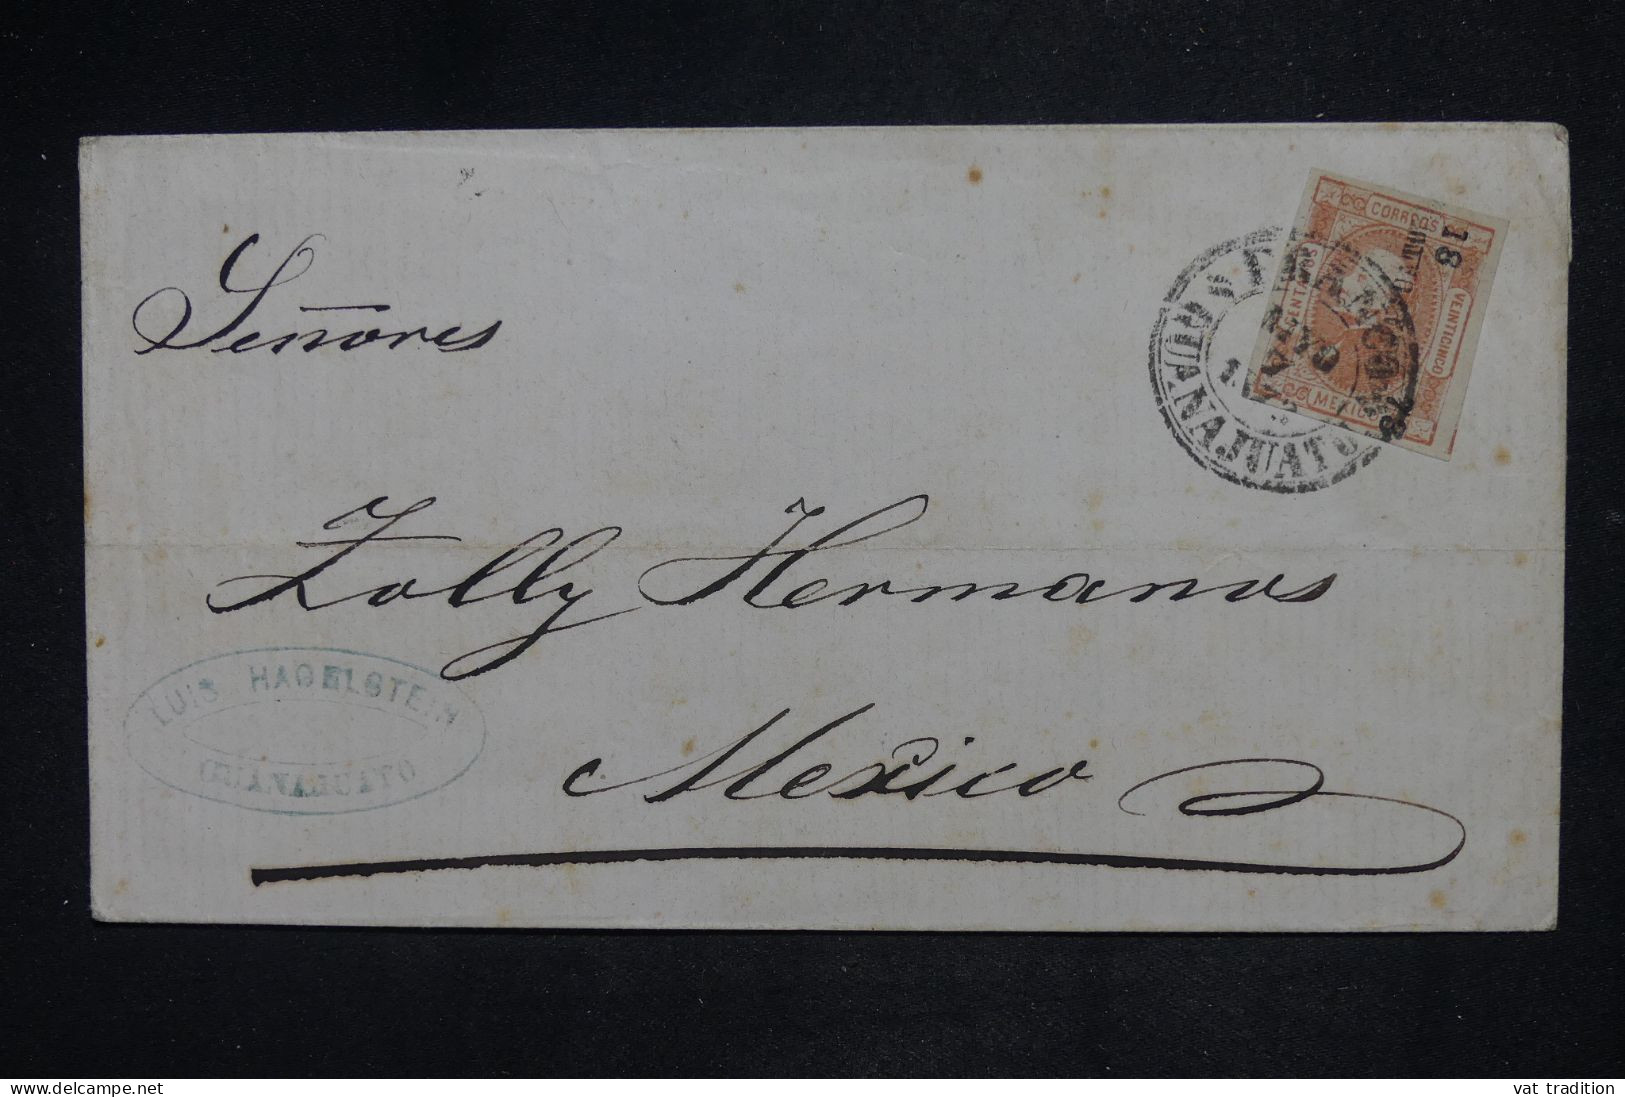 Señores
Zolly Hermanos
Mexico
LUIS HAGELSTEIN
GUANAJUATO
CORREOS
VEINTICINCO
CENTAVOS
MEXICO
18
73
FRANCO EN
GUANAJUATO
MAYO
www.delcampe.net
vat tradition